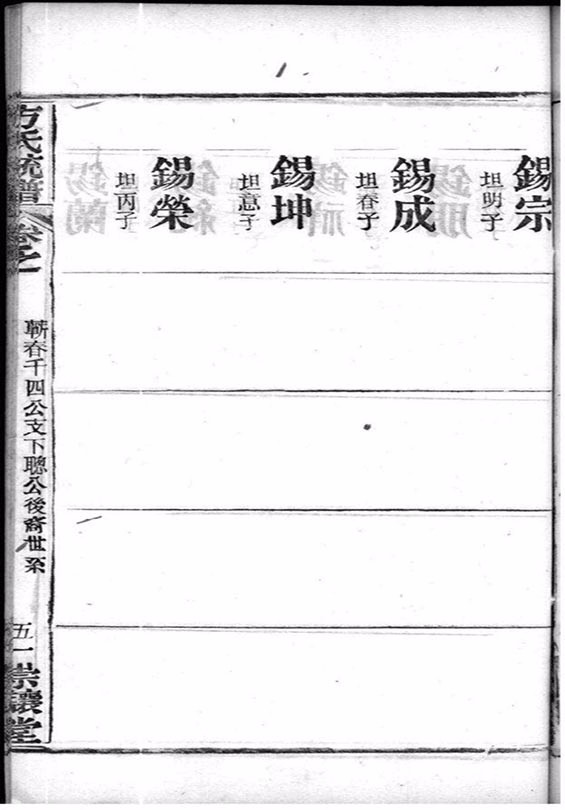 錫宗
坦明子
錫成
坦春子
錫坤
坦意子
錫榮
坦丙子
方氏統譜
卷之一
蘄春千四公支下聰公後裔世系
五一
崇讓堂